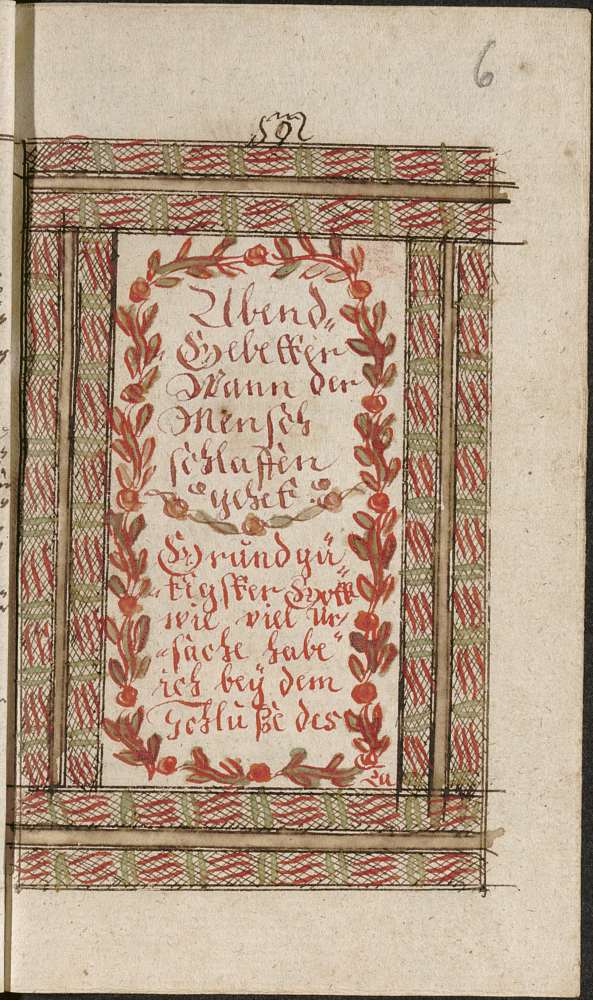 6
Abend„
Gebetter
Wann der
Mensch
schlaffen
gehet
Grundgü„
„tigster Gott
wie viel Ur„
„sache habe
ich beÿ dem
Schlusse des
Ta